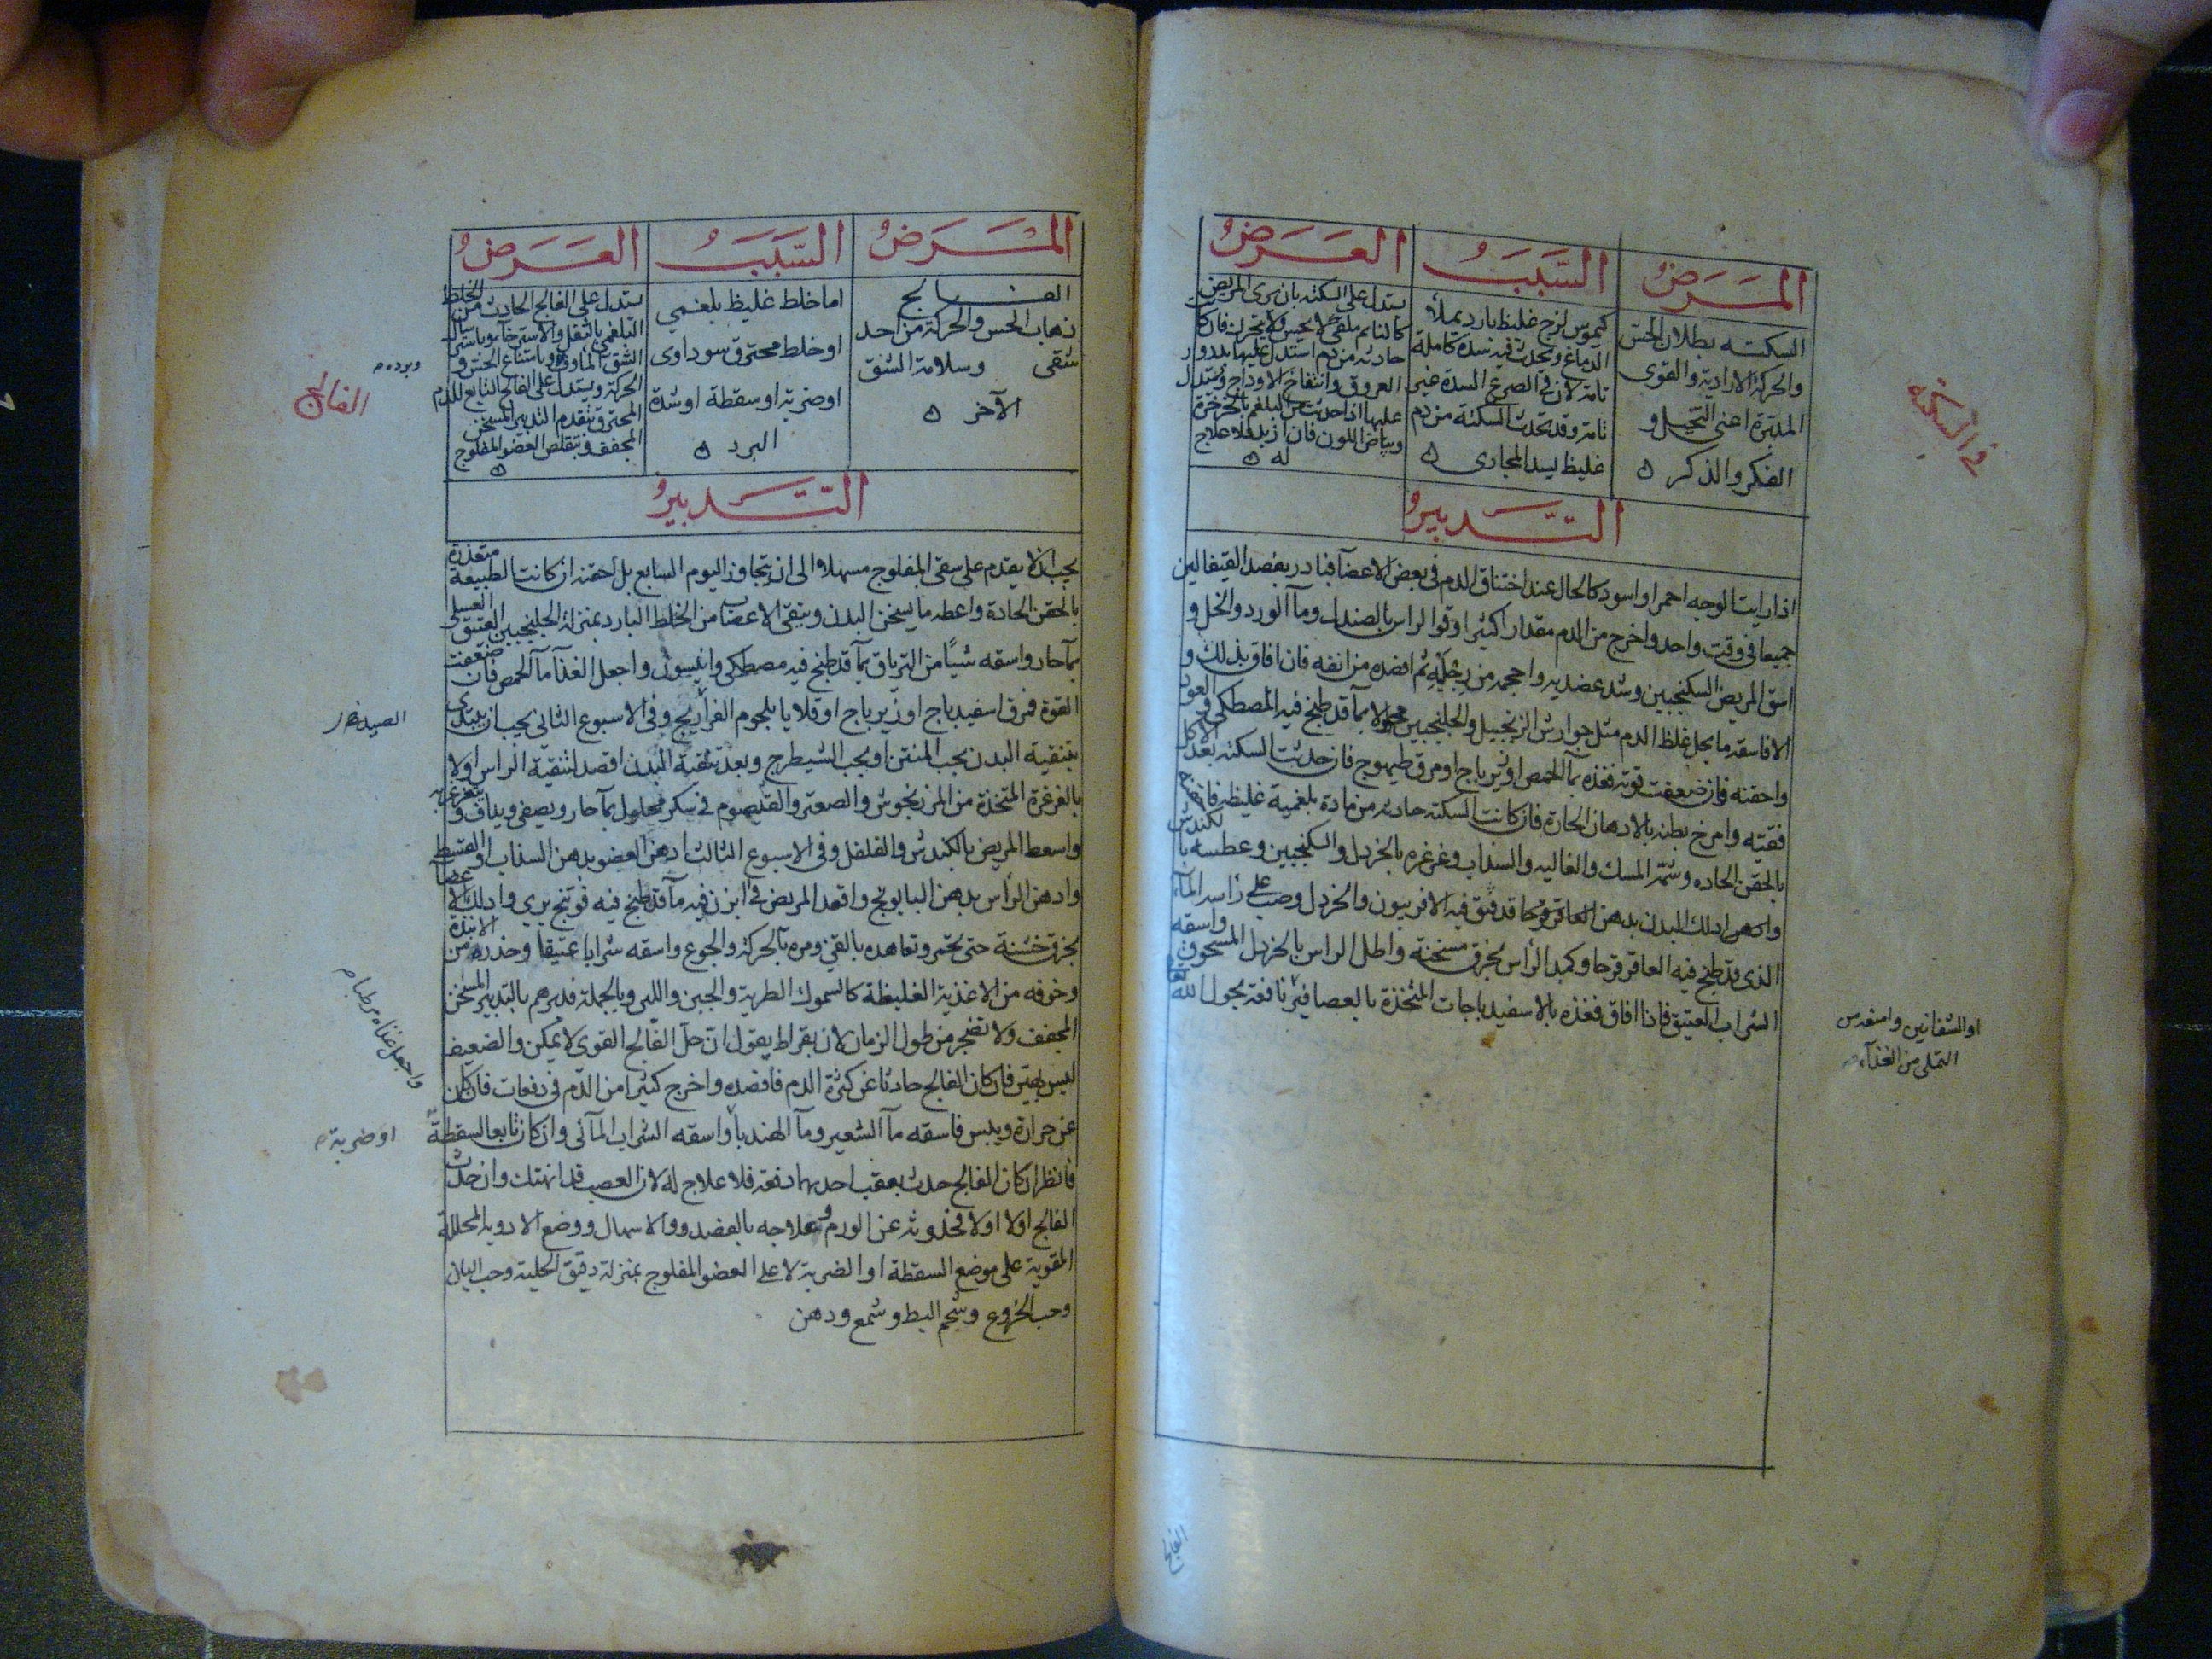 في السكتة
المرض
السبب
العرض
السكته بطلان الحسّ
والحركة الارادية والقوى
المدبّرة اعني التخيل و
الفكر والذكر ه
كيموس لزج غليظ بارد يملأ
الدماغ ويحدث فيه سدة كاملة
تامة لان في الصرع السدة غير
تامة وقد تحدث السكتة من دم
غليظ يسد المجارى ه
يستدل على السكته بان يرى المريض
كالنائم ملقى لا يحس ولا يتحرك فان كانت
حادثه من دم استدل عليها بدرور
العروق وانتفاخ الاوداج ويستدل
عليها اذا حدثت من البلغم بالخرخرة
وبياض اللون فان ازبد فلا علاج
له ه
التدبير
اذا رايت الوجه احمر او اسود كالحال عند اختناق الدم في بعض الاعضآ فبادر بفصد القيفالين
جميعا في وقت واحد واخرج من الدم مقدارا كثيرا وقو الراس بالصندل ومآ الورد والخل و
اسق المريض السكنجبين وشد عضديه واحجمه من رجليه ثم افصده من انفه فان افاق بذلك و
الا فاسقه ما يحل غلظ الدم مثل جوارش الزنجبيل والجلنجبين محلولا بمآ قد طبخ فيه المصطكى والعود
واحقنه فان ضعفت قوته فغذه بمآ الحمص او زيرباج او مرق طيهوج فان حدثت السكته بعد الاكل
فقيّه وامرخ بطنه بالادهان الحارة فان كانت السكته حادثه من مادة بلغمية غليظه
بالحقن الحاده وشمّه المسك والغاليه والسذاب وغرغره بالخردل والسكنجبين وعطسه بالكندش
ادلك البدن بدهن العاقرقرحا قد فتق فيه الافربيون والخردل وصب على راسه المآ
الذى قد طبخ فيه العاقرقرحا وكمد الرأس بخرق مسخنة واطل الراس بالخردل المسحوق واسقه
الشراب العتيق فاذا افاق فغذه بالاسفيدباجات المتخذة بالعصافير نافعة بحول الله تعالى
او الشفانين وامنعه من
التملى من الغذآء
الفالج
المرض
السبب
العرض
الفالج
ذهاب الحس والحركة من احد
شقى وسلامة الشق
الآخر ه
اما خلط غليظ بلغمي
او خلط محترق سوداوى
او ضربة او سقطة او شدة
البرد ه
يستدل على الفالج الحادث من الخلط
البلغمي بالثقل والاسترخآ وباسترسال
الشق المأوف وبامتناع الحس و
الحركة ويستدل على الفالج التابع للدم
المحترق بتقدم التدبير المسخن
المجفف وبتقلص العضو المفلوج
ه
وبرده
الفالج
التدبير
يجب ان لا يقدم على سقى المفلوج مسهلا والى ان يتجاوز اليوم السابع بل احقنه ان كانت الطبيعة متعذرة
بالحقن الحادة واعطه ما يسخن البدن وينقى الاعصاب من الخلط البارد بمنزلة الجلنجبين العسلي العتيق
بمآ حار واسقه شيئا من الترياق بمآ قد طبخ فيه مصطكى وانيسون واجعل الغذآ مآ الحمص فان ضعفت
القوة فمرق اسفيدباج او زيرباج او قلايا بلحوم الفراريج وفي الاسبوع الثاني يجب ان يبتدى
بتنقية البدن بحب المنتن او بحب الشيطرج وبعد تنقية البدن اقصد لتنقية الراس اولا
بالغرغرة المتخذة من المرزنجوش والصعتر والقيصوم في سكر محلول بمآ حار ويصفى ويداف و يتغرغر به
واسعط المريض بالكندش والفلفل وفي الاسبوع الثالث ادهن العضو بدهن السذاب او القسط
وادهن الرأس بدهن البابونج واقعد المريض في ابزن فيه مآ قد طبخ فيه فوتنج بري وادلك الاعضآ
بخرق خشنة حتى تحمر وتعاهده بالقي ومره بالحركة والجوع واسقه شرابا عتيقا وحذره من الانبذة
وخوفه من الاغذية الغليظة كالسموك الطرية والجبن واللبن وبالجملة فدبرهم بالتدبير المسخن
المجفف ولا تضجر من طول الزمان لان بقراط يقول انّ حلّ الفالج القوى لا يمكن والضعيف
ليس بهين فان كان الفالج حادثا عن كثرة الدم فافصده واخرج كثيرا من الدّم في دفعات فان كان
عن حرارة ويبس فاسقه مآ الشعير ومآ الهندبا واسقه الشراب المآئى وان كان تابعا لسقطة
فانظر ان كان الفالج حدث بعقب احديهما دفعة فلا علاج له لان العصب قد انهتك وان حدث
الفالج اولا اولا فحدوثه عن الورم وعلاجه بالفصد والاسهال ووضع الادويه المحللة
المقوية على موضع السقطة او الضربة لا على العضو المفلوج بمنزلة دقيق الحلبة وحب البان
وحب الخروع وشحم البط وشمع ودهن
واجعل غذاه مرطبا
او ضربة
الفالج